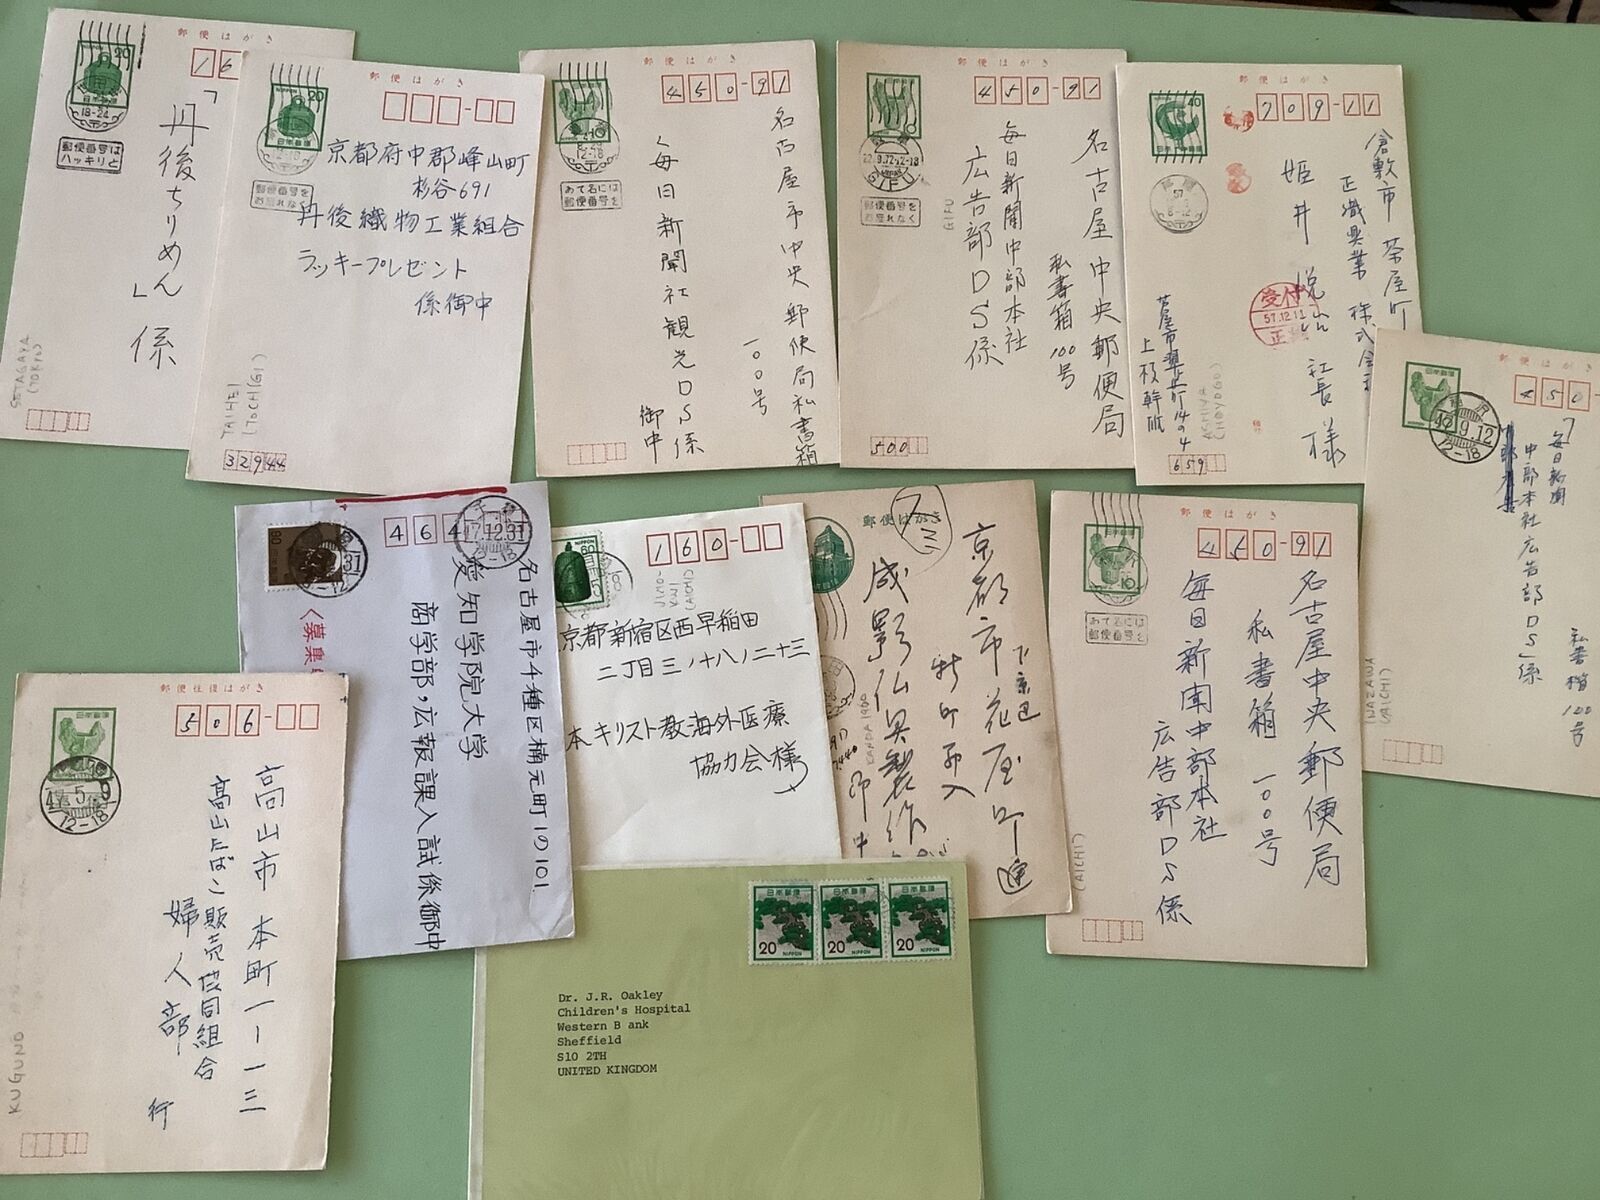 郵便はがき
20
日本郵便
18-24
郵便番号は
ハッキリと
「丹後ちりめん」係
SETAGAYA
(TOKYO)
郵便はがき
20
日本郵便
郵便番号を
お忘れなく
京都府中郡峰山町
杉谷691
丹後織物工業組合
ラッキープレゼント
係御中
TAIHEI
(TOCHIGI)
32944
郵便はがき
450-91
10
12-18
あて名には
郵便番号を
名古屋市中央郵便局私書箱
一〇〇号
毎日新聞社観光DS係
御中
郵便はがき
450-91
22.9.72.12-18
GIFU
郵便番号を
お忘れなく
名古屋中央郵便局
私書箱100号
毎日新聞中部本社
広告部DS係
GIFU
500
郵便はがき
日本郵便
40
709-11
57
8-12
倉敷市茶屋町
正織興業株式会社
姫井 社長様
受付
57.12.11
芦屋市翠ヶ丘町14の4
上枝幹雄
ASHIYA
(HOYOGO)
659
郵便はが
日本郵便
450-
9.12
12-18
毎日新聞
中部本社広告部DS」係
私書箱100号
INAZAWA
(AICHI)
80
464
17.12.31
名古屋市千種区楠元町1の101
愛知学院大学
商学部,広報課入試係御中
60
NIPPON
160-
JIMO-
KUJI
(AICHI)
京都新宿区西早稲田
二丁目三ノ十八ノ二十三
本キリスト教海外医療
協力会様
郵便はがき
京都市下京区
花屋
KANDA 1960
郵便はがき
10
450-91
あて名には
郵便番号を
名古屋中央郵便局
私書箱 一〇〇号
毎日新聞中部本社
広告部DS係
(AICHI)
郵便往復はがき
日本郵便
506-
12-18
高山市本町一ー一三
高山たばこ販売協同組合
婦人部 行
KUGUNO
日本郵便
20
NIPPON
日本郵便
20
NIPPON
日本郵便
20
NIPPON
Dr. J.R. Oakley
Children's Hospital
Western B ank
Sheffield
S10 2TH
UNITED KINGDOM